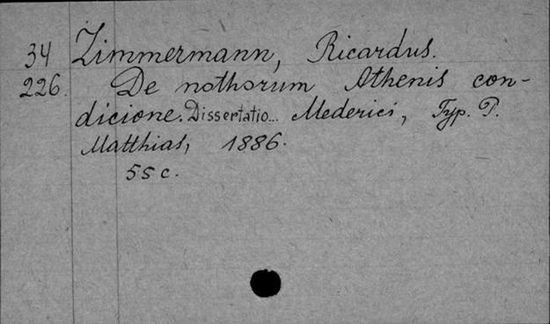 34 Zimmermann, Ricardus.
226. De nothorum Athenis con-
dicione. Dissertatio... Mederici, Typ. P.
Matthias, 1886.
55 c.